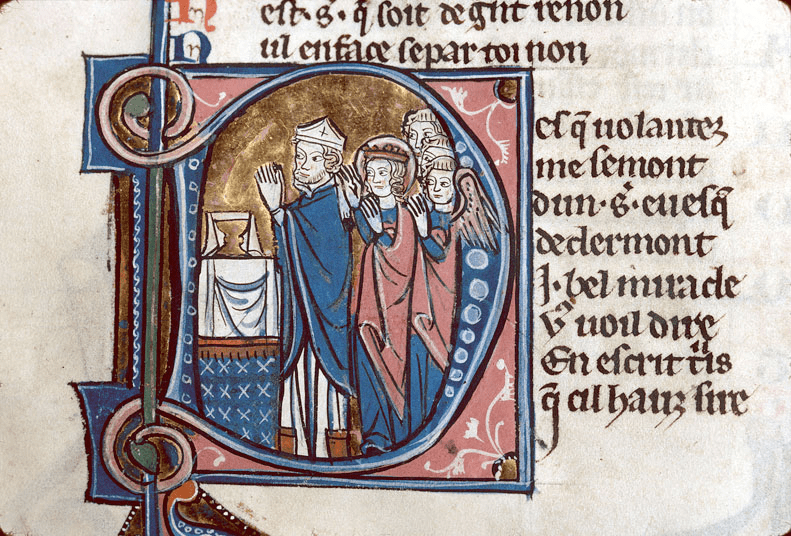 est·s̄· q̄ soit de gnt renon
ul enface se par toi non
es q̄ uolantez
me semont
dun·s̄·euesq̄
de clermont
J·bel miracle
uoil dire
En escrit
q̄ cil hauz sire